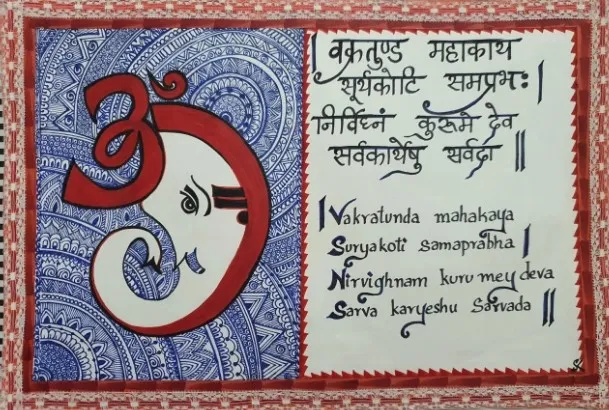 |वक्रतुण्ड महाकाय
सूर्यकोटि समप्रभः|
निर्विघ्नं कुरुमे देव
सर्वकार्येषु सर्वदा ||
|Vakratunda mahakaya
Suryakoti samaprabha|
Nirvighnam kuru mey deva
Sarva karyeshu Sarvada ||